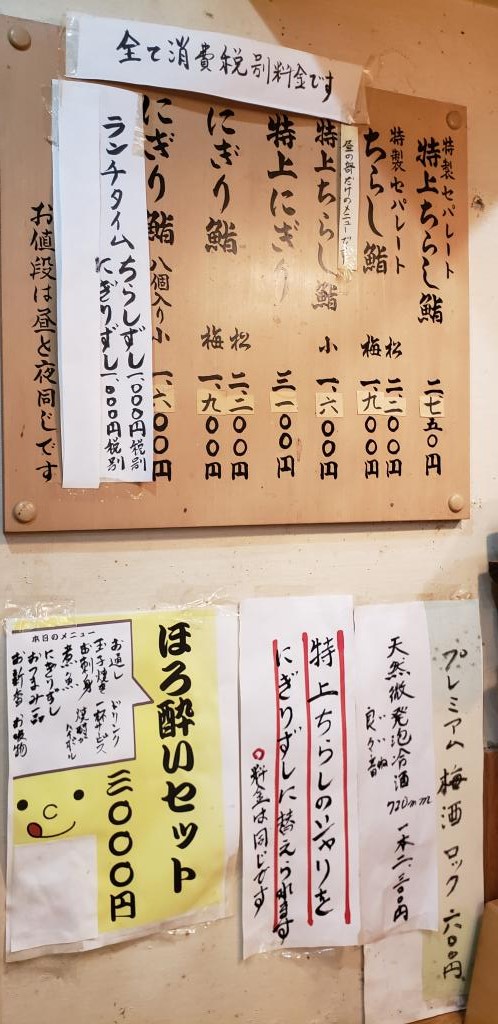 全て消費税別料金です
特製セパレート
特上ちらし鮨 二、七五〇円
特製セパレート
ちらし鮨 松 二、二〇〇円
梅 一、九〇〇円
特上ちらし鮨 小 一、六〇〇円
特上にぎり 三一〇〇円
にぎり鮨 松 二、二〇〇円
梅 一、九〇〇円
にぎり鮨 八個入り 小 一、六〇〇円
ランチタイム ちらしずし 一、〇〇〇円 税別
にぎりずし 一、〇〇〇円 税別
お値段は昼と夜同じです
プレミアム梅酒 ロック 六〇〇円
天然微発泡冷酒 720mm 一本二、三〇〇円
特上ちらしのシャリを
にぎりずしに替えられます
料金は同じです
ほろ酔いセット 三〇〇〇円
本日のメニュー
お通し
玉子焼き
お刺身
煮魚
にぎりずし
おつまみ一品
お新香 お吸物
ドリンク
一杯サービス